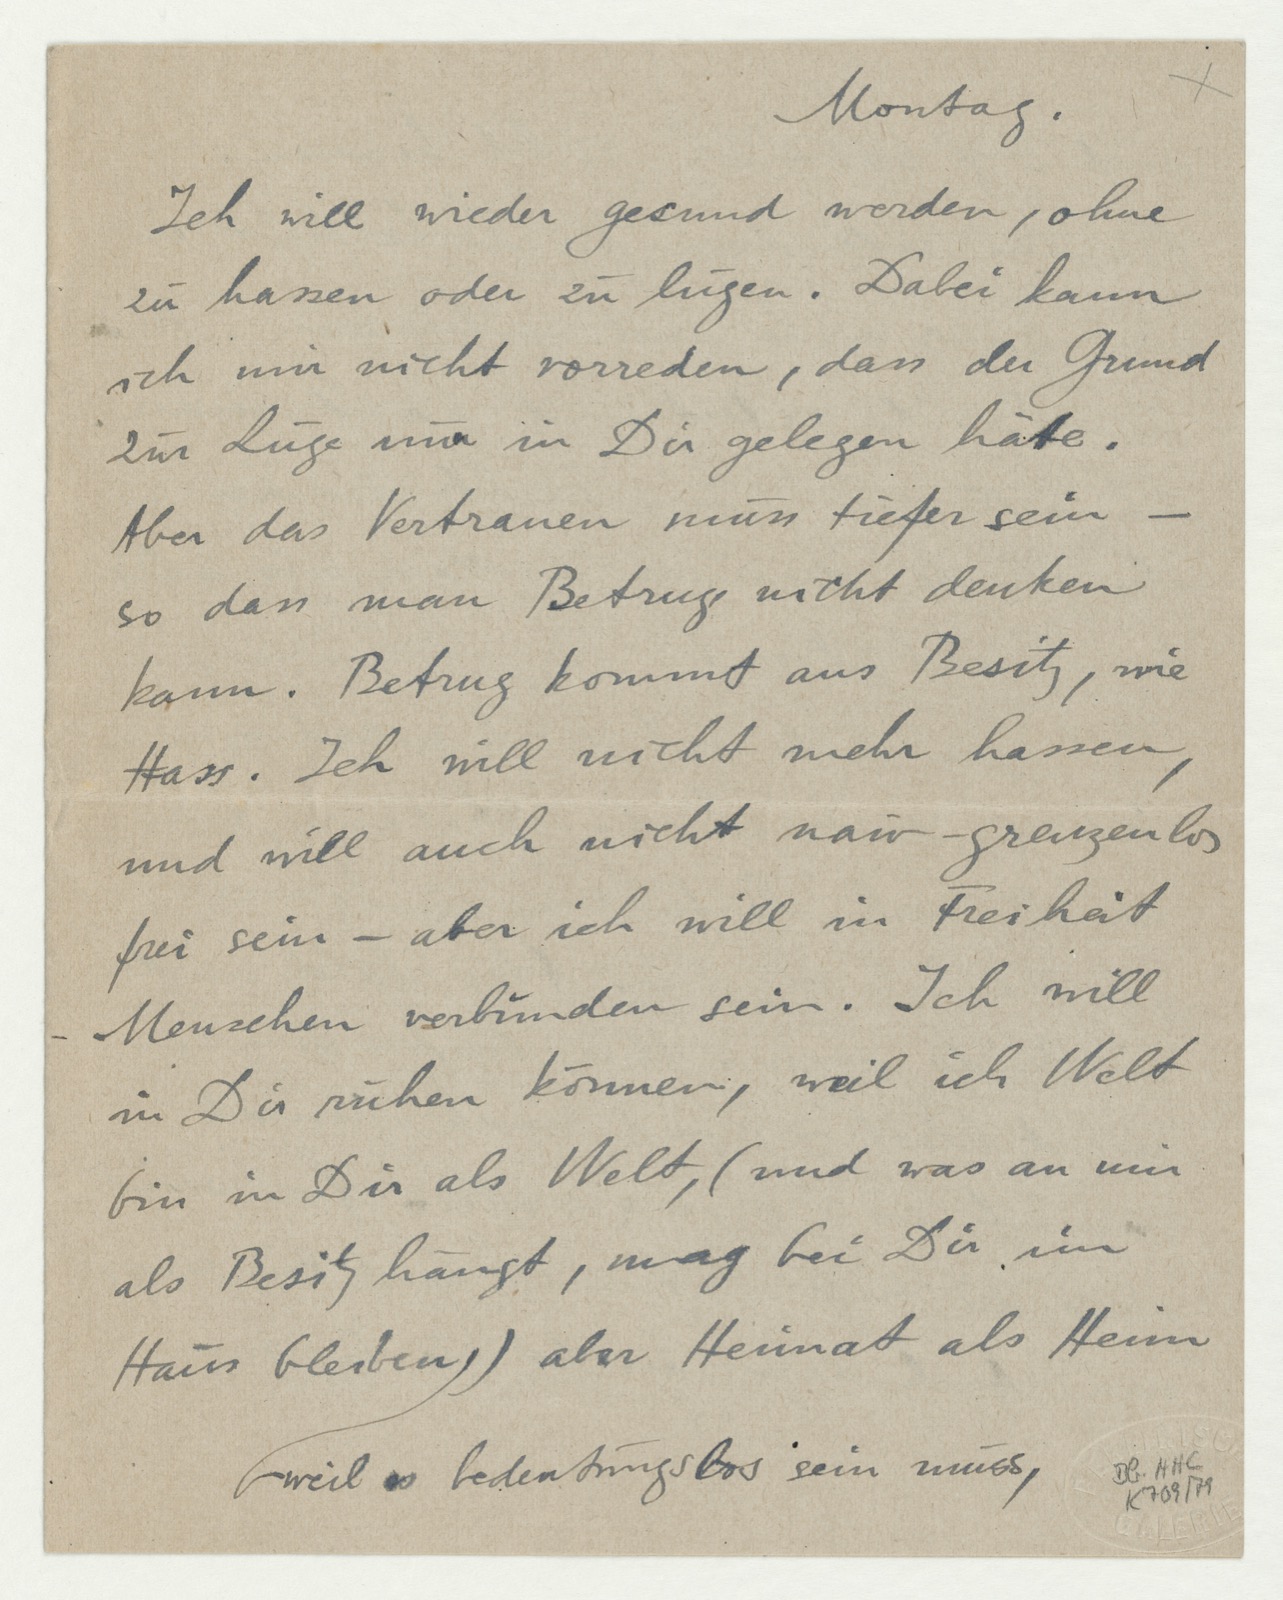 Montag.
Ich will wieder gesund werden, ohne
zu hassen oder zu lügen. Dabei kann
ich mir nicht vorreden, dass der Grund
zur Lüge nur in Dir gelegen häte.
Aber das Vertrauen muss tiefer sein –
so dass man Betrug nicht denken
kann. Betrug kommt aus Besitz, wie
Hass. Ich will nicht mehr hassen,
und will auch nicht naiv-grenzenlos
frei sein – aber ich will in Freiheit
Menschen verbunden sein. Ich will
in Dir ruhen können, weil ich Welt
bin in Dir als Welt, (und was an mir
als Besitz hängt, mag bei Dir im
Haus bleiben,) aber Heimat als Heim
weil es bedeutungslos sein muss,
Dl. HHC
K709/79
GALERIE